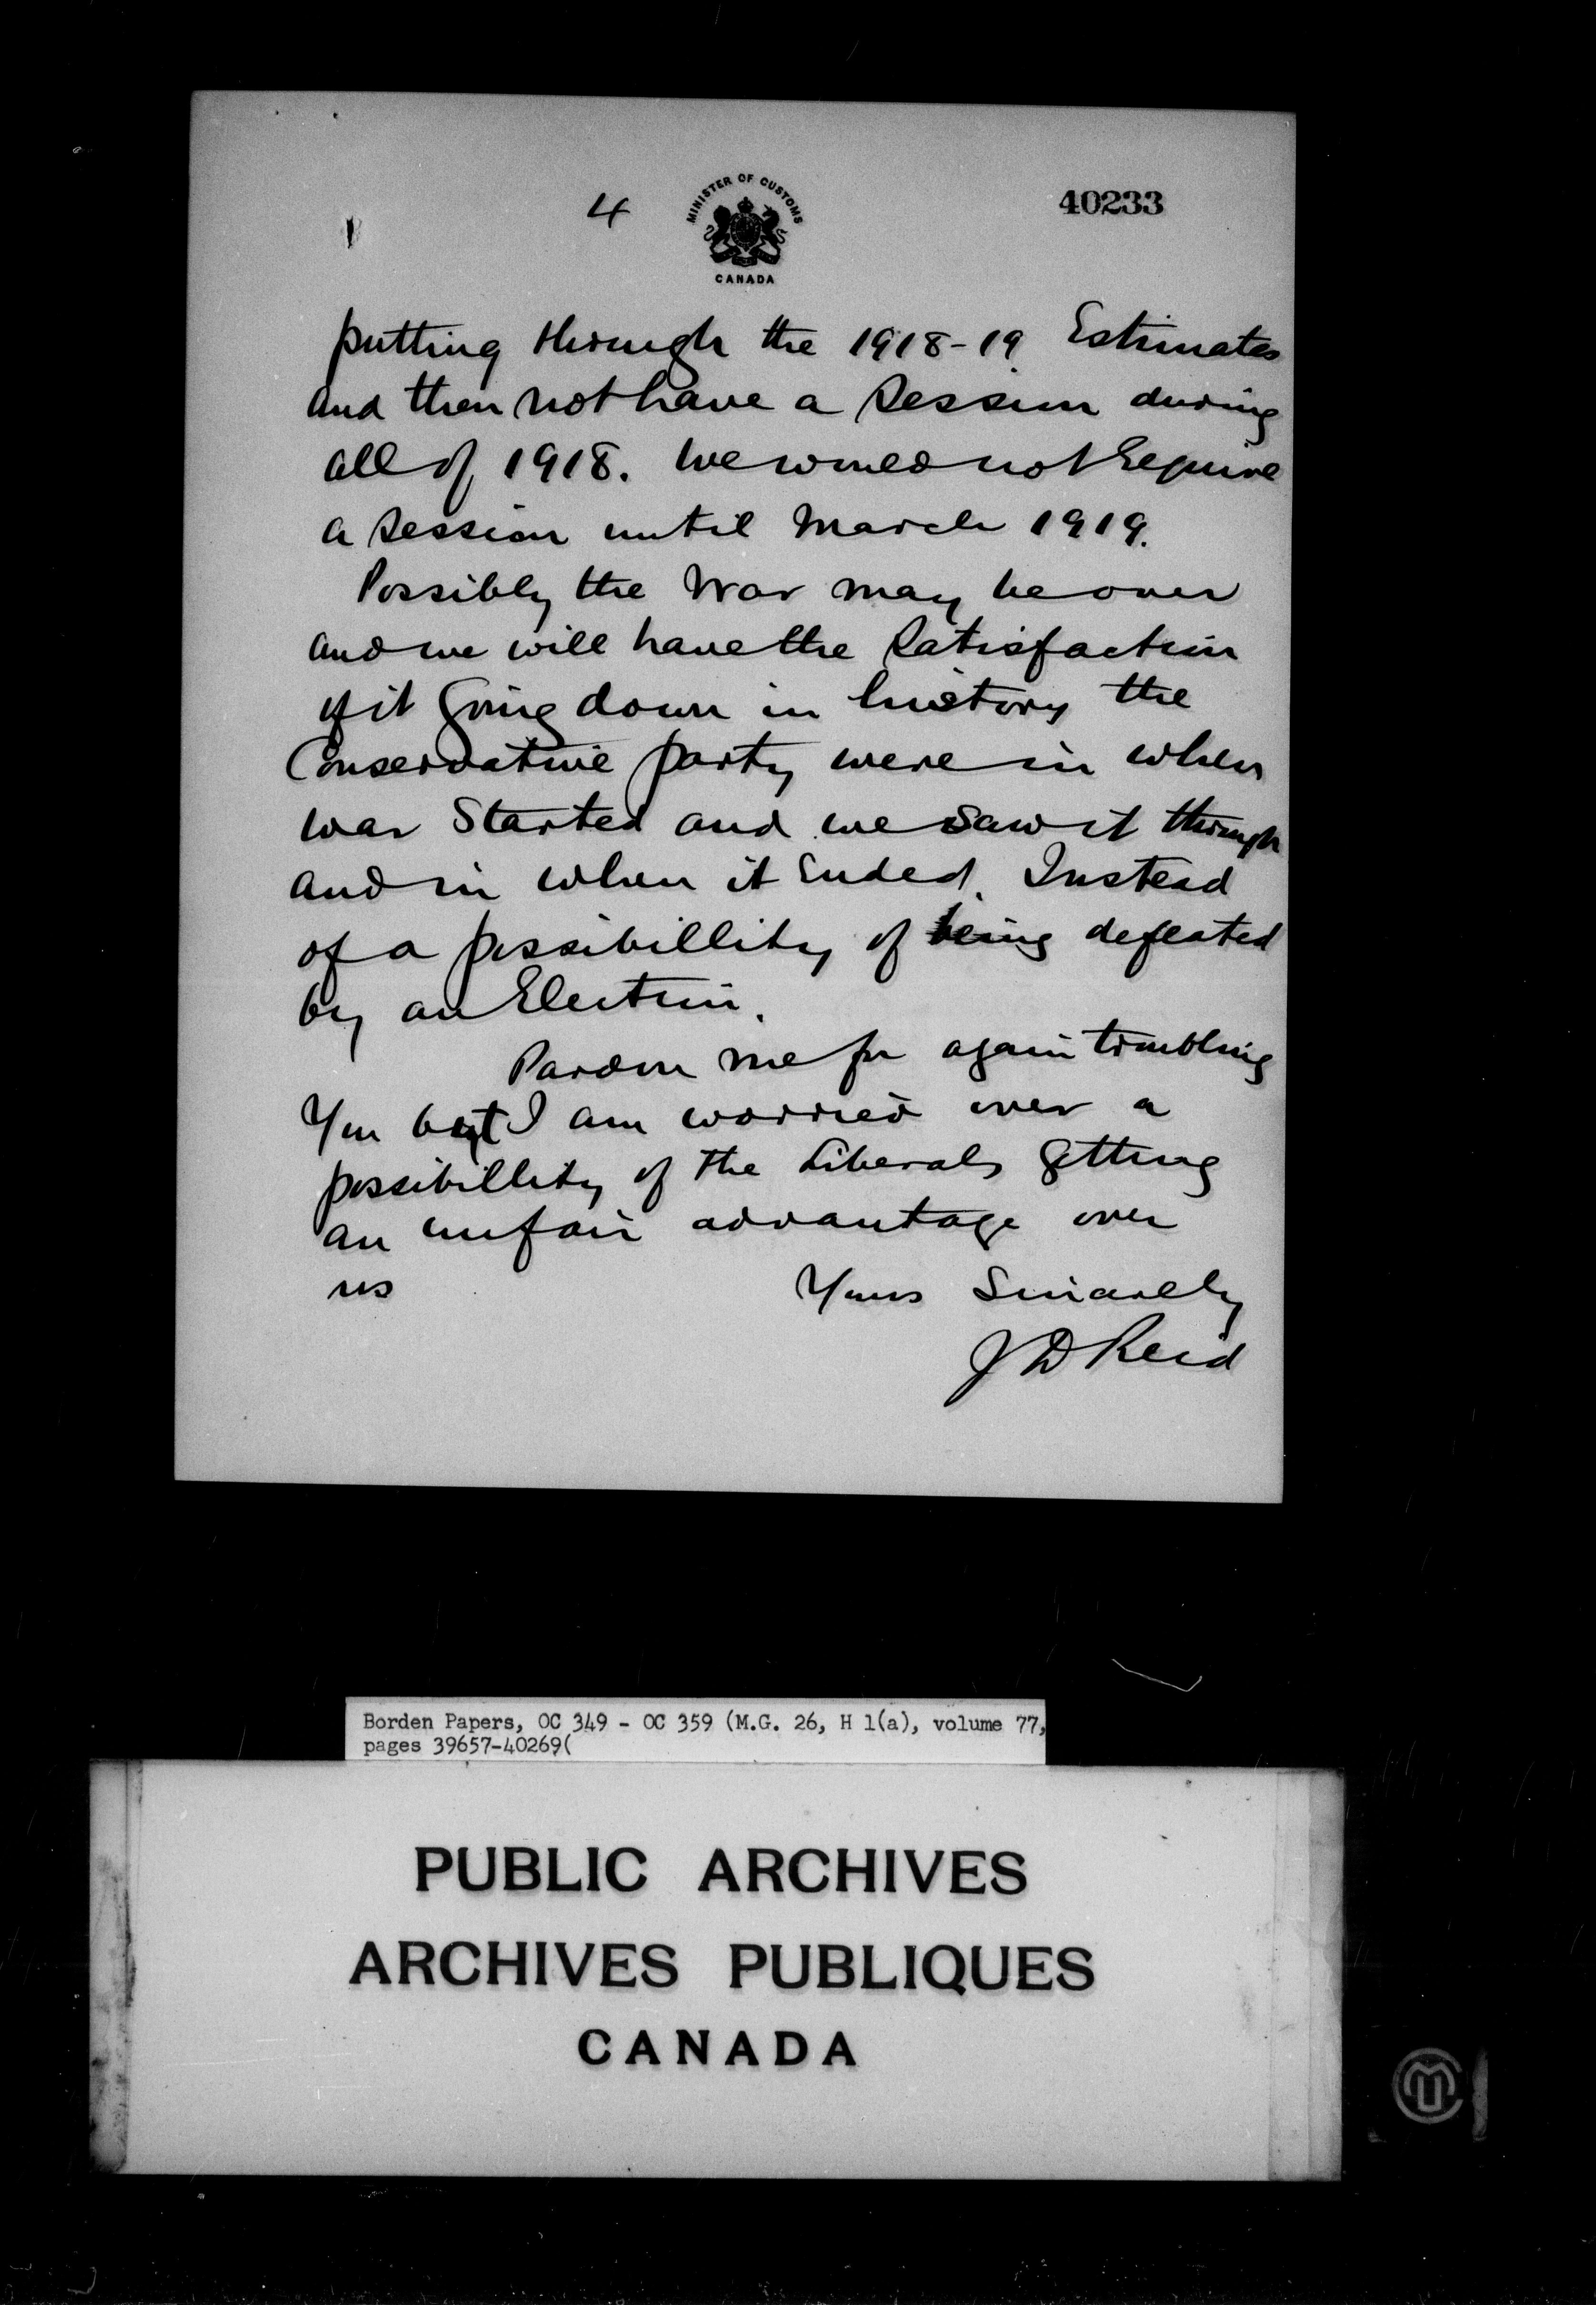 4
MINISTER OF CUSTOMS
CANADA
40233
putting through the 1918-19 Estimates
and then not have a Session during
all of 1918. We would not Require
a Session until March 1919.
Possibly the War may be over
and we will have the Satisfaction
of it going down in history the
Conservative party were in when
war Started and we saw it through
and in when it Ended. Instead
of a possibillity of being defeated
by an Election.
Pardon me for again troubling
You but I am worried over a
possibillity of the Liberals getting
an unfair advantage over
us
Yours Sincerely
J D Reid
Borden Papers, OC 349 - OC 359 (M.G. 26, H 1(a), volume 77,
pages 39657-40269(
PUBLIC ARCHIVES
ARCHIVES PUBLIQUES
CANADA